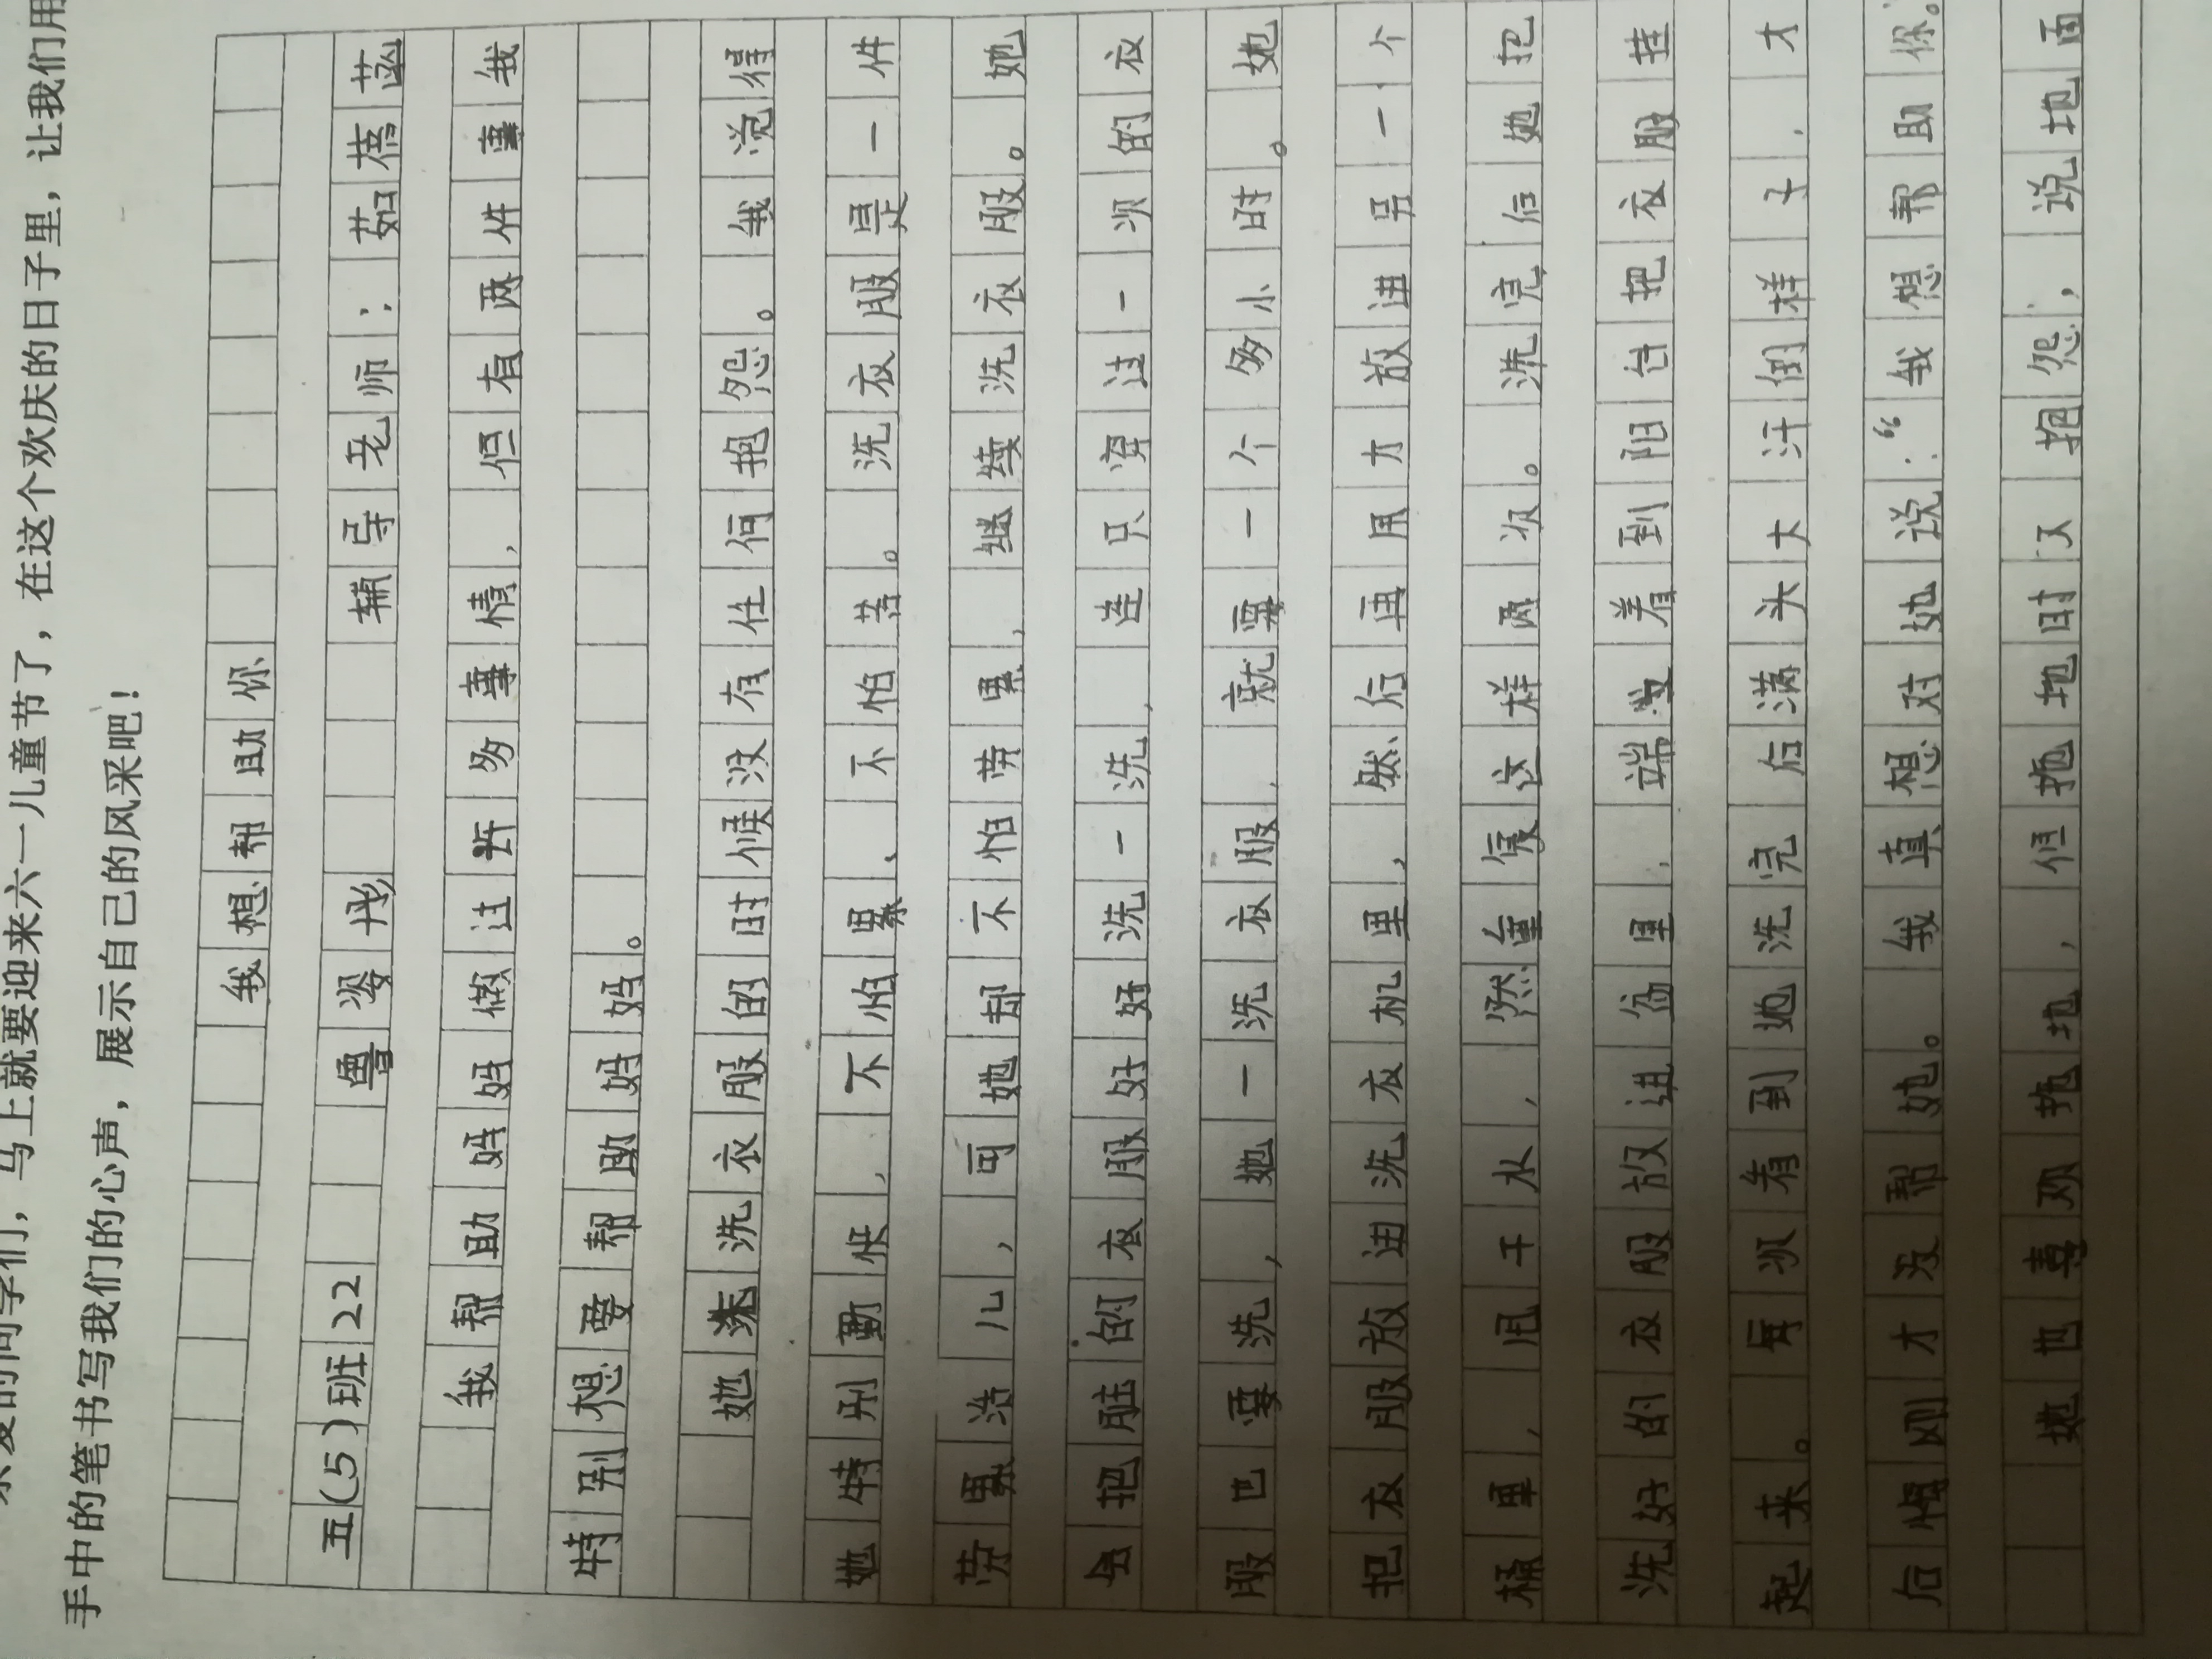 马上就要迎来六一儿童节了，在这个欢庆的日子里，让我们用
手中的笔书写我们的心声，展示自己的风采吧！
我想帮助你
五(5)班22 鲁姿彤 辅导老师：茹蓓菡
我帮助妈妈做过许多事情，但有两件事我
特别想要帮助妈妈。
她洗衣服的时候没有任何抱怨。我觉得
她特别勤快，不怕累、不怕苦。洗衣服是一件
劳累活儿，可她却不怕劳累，继续洗衣服。她
会把脏的衣服好好洗一洗，连只穿过一次的衣
服也要洗，她一洗衣服，就要一个多小时。她
把衣服放进洗衣机里，然后再用力放进另一个
桶里，甩干水，然重复这样两次。洗完后她把
洗好的衣服放进盆里，端着到阳台把衣服挂
起来。每次看到她洗完后满头大汗的样子，才
后悔刚才没帮她。我真想对她说：“我想帮助你。”
她也喜欢拖地，但拖地时又抱怨，说地面